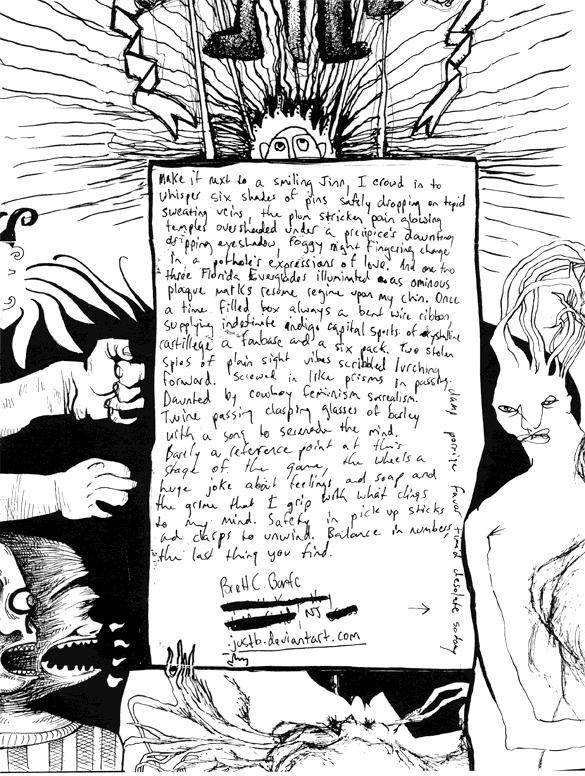 Make it next to a smiling Jinn, I crowd in to
whisper six shades of pins safely dropping on tepid
sweating veins, the plum stricken pain glowing
temples overshaded under a precipice's daunting
dripping eyeshadow. Foggy night fingering change
in a pothole's expressions of love. And one two
three Florida Everglades illuminated as ominous
plaque marks resume regime upon my chin. Once
a time filled box always a bent wire ribbon
supplying indefinite indigo capital spirits of crystalline
cartillege a fanbase and a six pack. Two stolen
spies of plain sight vibes scribbled lurching
forward. Screwed in like prisms in passing.
Daunted by cowboy feminism surrealism.
Twine passing clasping glasses of barley
with a song to serenade the mind.
Barely a reference point at this
stage of the game, the wheels a
huge joke about feelings and soap and
the grime that I grip with what clings
to my mind. Safety in pick up sticks
and clasps to unwind. Balance in numbers,
the last thing you find.
Brett C.
NJ
justb.deviantart.com
favor timid desolate